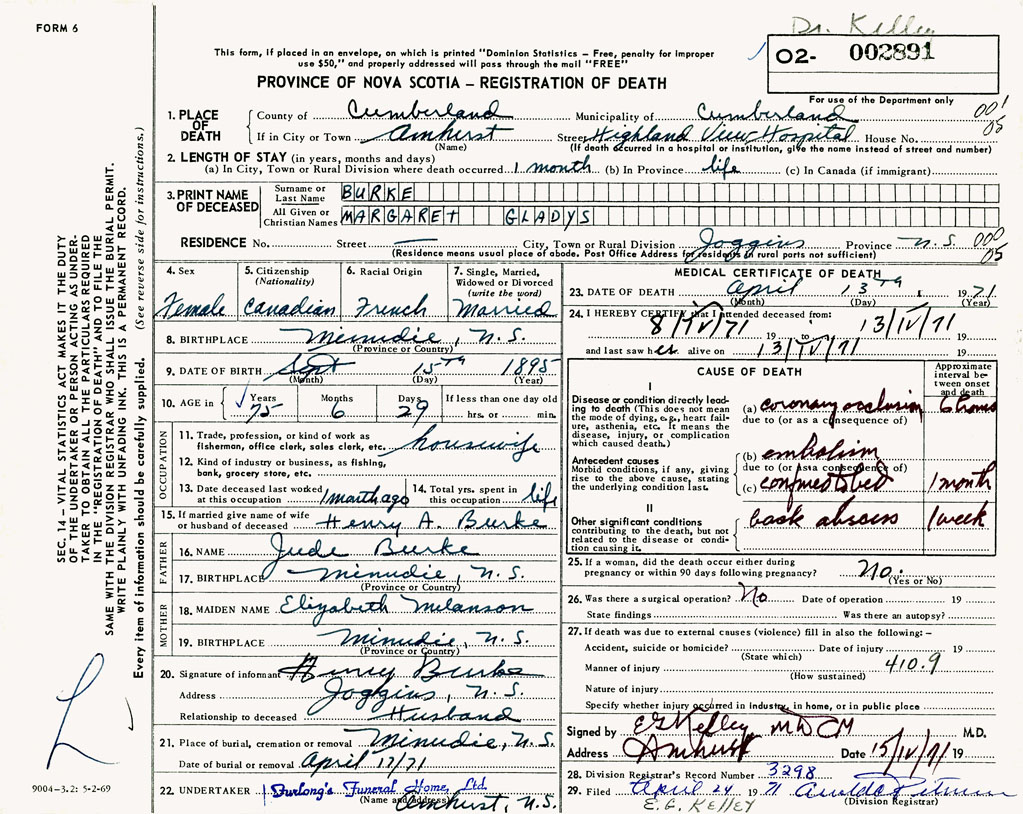 FORM 6
Dr. Kelley
This form, if placed in an envelope, on which is printed "Dominion Statistics – Free, penalty for improper
use $50," and properly addressed will pass through the mail "FREE"
PROVINCE OF NOVA SCOTIA – REGISTRATION OF DEATH
02- 002891
For use of the Department only
001
05
1. PLACE OF DEATH
County of Cumberland Municipality of Cumberland
If in City or Town Amherst Street Highland View Hospital House No.
(Name) (If death occurred in a hospital or institution, give the name instead of street and number)
2. LENGTH OF STAY (in years, months and days)
(a) In City, Town or Rural Division where death occurred 1 month (b) In Province life (c) In Canada (if immigrant)
3. PRINT NAME OF DECEASED
Surname or Last Name BURKE
All Given or Christian Names MARGARET GLADYS
RESIDENCE No. Street — City, Town or Rural Division Joggins Province N.S. 000
05
(Residence means usual place of abode. Post Office Address for residents in rural parts not sufficient)
4. Sex Female
5. Citizenship (Nationality) Canadian
6. Racial Origin French
7. Single, Married, Widowed or Divorced (write the word) Married
8. BIRTHPLACE Minudie, N.S.
(Province or Country)
9. DATE OF BIRTH Sept 15TH 1895
(Month) (Day) (Year)
10. AGE in Years 75 Months 6 Days 29 If less than one day old hrs. or min.
OCCUPATION
11. Trade, profession, or kind of work as fisherman, office clerk, sales clerk, etc. housewife
12. Kind of industry or business, as fishing, bank, grocery store, etc.
13. Date deceased last worked at this occupation 1 month ago 14. Total yrs. spent in this occupation life
15. If married give name of wife or husband of deceased Henry A. Burke
FATHER
16. NAME Jude Burke
17. BIRTHPLACE Minudie, N.S.
(Province or Country)
MOTHER
18. MAIDEN NAME Elizabeth Melanson
19. BIRTHPLACE Minudie, N.S.
(Province or Country)
20. Signature of informant Henry Burke
Address Joggins, N.S.
Relationship to deceased Husband
21. Place of burial, cremation or removal Minudie, N.S.
Date of burial or removal April 17/71
22. UNDERTAKER Furlong's Funeral Home, Ltd.
(Name and address) Amherst, N.S.
MEDICAL CERTIFICATE OF DEATH
23. DATE OF DEATH April 13TH 1971
(Month) (Day) (Year)
24. I HEREBY CERTIFY that I attended deceased from:
8/IV/71 19 to 13/IV/71 19
and last saw her alive on 13/IV/71 19
CAUSE OF DEATH
Approximate interval between onset and death
I
Disease or condition directly leading to death (This does not mean the mode of dying, e.g., heart failure, asthenia, etc. It means the disease, injury, or complication which caused death.)
(a) coronary occlusion 6 hours
due to (or as a consequence of)
Antecedent causes
Morbid conditions, if any, giving rise to the above cause, stating the underlying condition last.
(b) embolism
due to (or as a consequence of)
(c) 1 month
II
Other significant conditions contributing to the death, but not related to the disease or condition causing it.
back abscess 1 week
25. If a woman, did the death occur either during pregnancy or within 90 days following pregnancy? No.
(Yes or No)
26. Was there a surgical operation? No Date of operation 19
State findings Was there an autopsy?
27. If death was due to external causes (violence) fill in also the following: –
Accident, suicide or homicide? Date of injury 19
(State which)
Manner of injury 410.9
(How sustained)
Nature of injury
Specify whether injury occurred in industry, in home, or in public place
Signed by EG Kelley MD CM M.D.
Address Amherst Date 15/IV/71 19
28. Division Registrar's Record Number 3298
29. Filed April 24 1971
(Division Registrar)
E. G. KELLEY
SEC. 14 – VITAL STATISTICS ACT MAKES IT THE DUTY
OF THE UNDERTAKER OR PERSON ACTING AS UNDER-
TAKER TO OBTAIN ALL THE PARTICULARS REQUIRED
IN THE "REGISTRATION OF DEATH" AND TO FILE THE
SAME WITH THE DIVISION REGISTRAR WHO SHALL ISSUE THE BURIAL PERMIT.
WRITE PLAINLY WITH UNFADING INK. THIS IS A PERMANENT RECORD.
Every item of information should be carefully supplied. (See reverse side for instructions.)
L
9004-3.2: 5-2-69